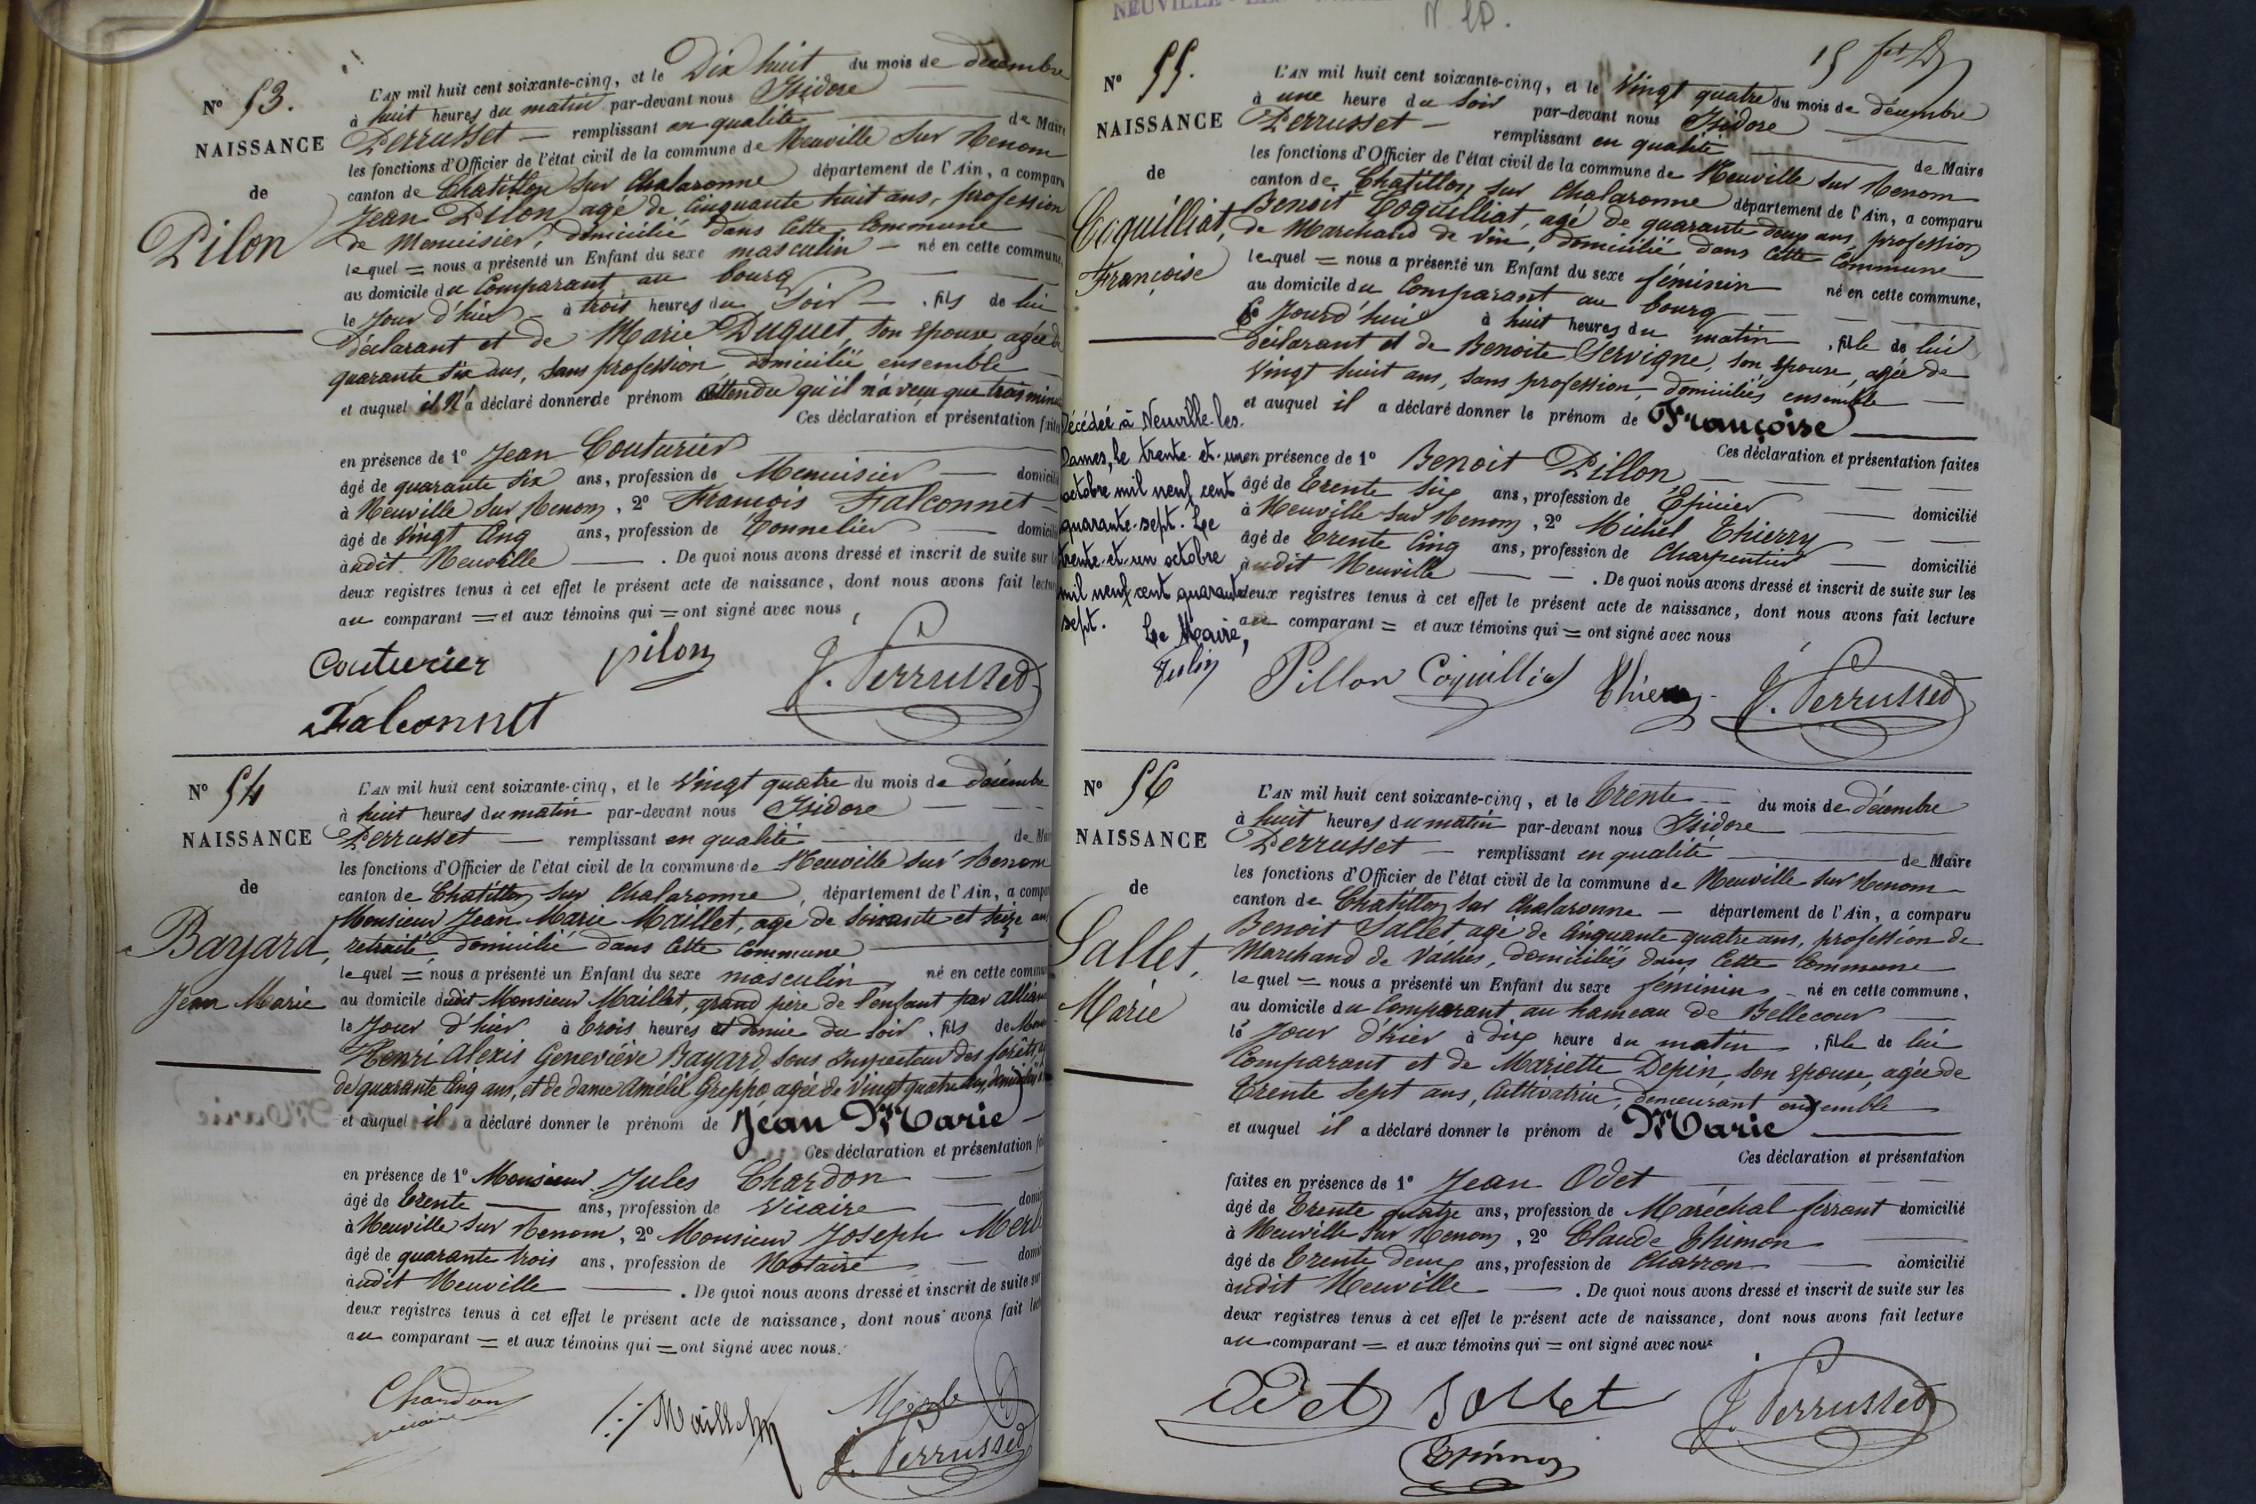 N° 53.
NAISSANCE
de
Pilon
L'AN mil huit cent soixante-cinq, et le Dix huit du mois de décembre
à huit heures du matin par-devant nous Isidore
Perrusset — remplissant en qualité de Maire
les fonctions d'Officier de l'état civil de la commune de Neuville sur Renom
canton de Chatillon sur Chalaronne département de l'Ain, a comparu
Jean Pilon, agé de Cinquante huit ans, profession
de Menuisier, domicilié dans cette Commune
lequel = nous a présenté un Enfant du sexe masculin — né en cette commune,
au domicile du Comparant au bourg
le Jour d'hier — à trois heures du Soir — , fils de lui
déclarant et de Marie Duquet, son épouse agée de
quarante six ans, sans profession, domiciliés ensemble
et auquel il n'a déclaré donner de prénom attendu qu'il n'a vécu que trois minu
Ces déclaration et présentation faites
en présence de 1° Jean Couturier
âgé de quarante six ans, profession de Menuisier — domicilié
à Neuville sur Renom, 2° François Falconnet —
âgé de Vingt Cinq ans, profession de Tonnelier — domicilié
àudit Neuville — . De quoi nous avons dressé et inscrit de suite sur les
deux registres tenus à cet effet le présent acte de naissance, dont nous avons fait lecture
au comparant = et aux témoins qui = ont signé avec nous,
Couturier pilon J. Perrusset
Falconnet
N° 54
NAISSANCE
de
Bayard,
Jean Marie
L'AN mil huit cent soixante-cinq, et le Vingt quatre du mois de décembre
à huit heures du matin par-devant nous Isidore
Perrusset — remplissant en qualité de Maire
les fonctions d'Officier de l'état civil de la commune de Neuville sur Renom
canton de Chatillon sur Chalaronne, département de l'Ain, a comparu
Monsieur Jean Marie Maillet, agé de Soixante et Seize ans
retraité, domicilié dans cette Commune
lequel = nous a présenté un Enfant du sexe masculin né en cette commune
au domicile dudit Monsieur Maillet, grand père de l'enfant par alliance
le Jour d'hier à trois heures et demie du Soir, fils de
Henri Alexis Geneviève Bayard, sous Inspecteur des forêts,
de quarante Cinq ans, et de dame Amélie Greppo, agée de Vingt quatre ans,
et auquel il a déclaré donner le prénom de Jean Marie —
Ces déclaration et présentation
en présence de 1° Monsieur Jules Chardon
âgé de trente — ans, profession de Vicaire —
à Neuville sur Renom, 2° Monsieur Joseph Merle
âgé de quarante trois ans, profession de Notaire —
àudit Neuville — . De quoi nous avons dressé et inscrit de suite sur
deux registres tenus à cet effet le présent acte de naissance, dont nous avons fait
au comparant = et aux témoins qui = ont signé avec nous.
Chardon Maillet Merle
vicaire J. Perrusset
NEUVILLE
15
N° 55.
NAISSANCE
de
Coquilliat,
Françoise
L'AN mil huit cent soixante-cinq, et le Vingt quatre du mois de décembre
à une heure du Soir par-devant nous Isidore
Perrusset — remplissant en qualité de Maire
les fonctions d'Officier de l'état civil de la commune de Neuville sur Renom
canton de Chatillon sur Chalaronne département de l'Ain, a comparu
Benoit Coquilliat, agé de quarante deux ans, profession
de Marchand de Vin, domicilié dans cette Commune
lequel = nous a présenté un Enfant du sexe féminin né en cette commune,
au domicile du Comparant au bourg
ce Jourd'hui à huit heures du matin , fille de lui
déclarant et de Benoite Servigne, son épouse, agée de
Vingt huit ans, sans profession, domiciliés ensemble
et auquel il a déclaré donner le prénom de Françoise
Ces déclaration et présentation faites
en présence de 1° Benoit Pillon
âgé de Trente Six ans, profession de Épicier — domicilié
à Neuville sur Renom, 2° Michel Thierry
âgé de Trente Cinq ans, profession de Charpentier — domicilié
àudit Neuville — . De quoi nous avons dressé et inscrit de suite sur les
deux registres tenus à cet effet le présent acte de naissance, dont nous avons fait lecture
au comparant = et aux témoins qui = ont signé avec nous
Décédée à Neuville-les-
Dames, le trente-et-un
octobre mil neuf cent
quarante-sept. Le
trente-et-un octobre
mil neuf cent quarante
sept.
Le Maire,
Pillon Coquilliat Thierry J. Perrusset
N° 56
NAISSANCE
de
Sallet,
Marie
L'AN mil huit cent soixante-cinq, et le Trente du mois de décembre
à huit heures du matin par-devant nous Isidore
Perrusset — remplissant en qualité de Maire
les fonctions d'Officier de l'état civil de la commune de Neuville sur Renom
canton de Chatillon sur Chalaronne — département de l'Ain, a comparu
Benoit Sallet agé de Cinquante quatre ans, profession de
Marchand de Vaches, domiciliés dans cette Commune
lequel = nous a présenté un Enfant du sexe féminin né en cette commune,
au domicile du Comparant au hameau de Bellecour
le Jour d'hier à dix heure du matin , fille de lui
Comparant et de Mariette Depin, son épouse, agée de
Trente sept ans, Cultivatrice, demeurant ensemble
et auquel il a déclaré donner le prénom de Marie
Ces déclaration et présentation
faites en présence de 1° Jean Odet
âgé de Trente quatre ans, profession de Maréchal ferrant domicilié
à Neuville sur Renom, 2° Claude Thimon
âgé de Trente deux ans, profession de Charron — domicilié
àudit Neuville — . De quoi nous avons dressé et inscrit de suite sur les
deux registres tenus à cet effet le présent acte de naissance, dont nous avons fait lecture
au comparant = et aux témoins qui = ont signé avec nous
Odet Sallet J. Perrusset
Thimon